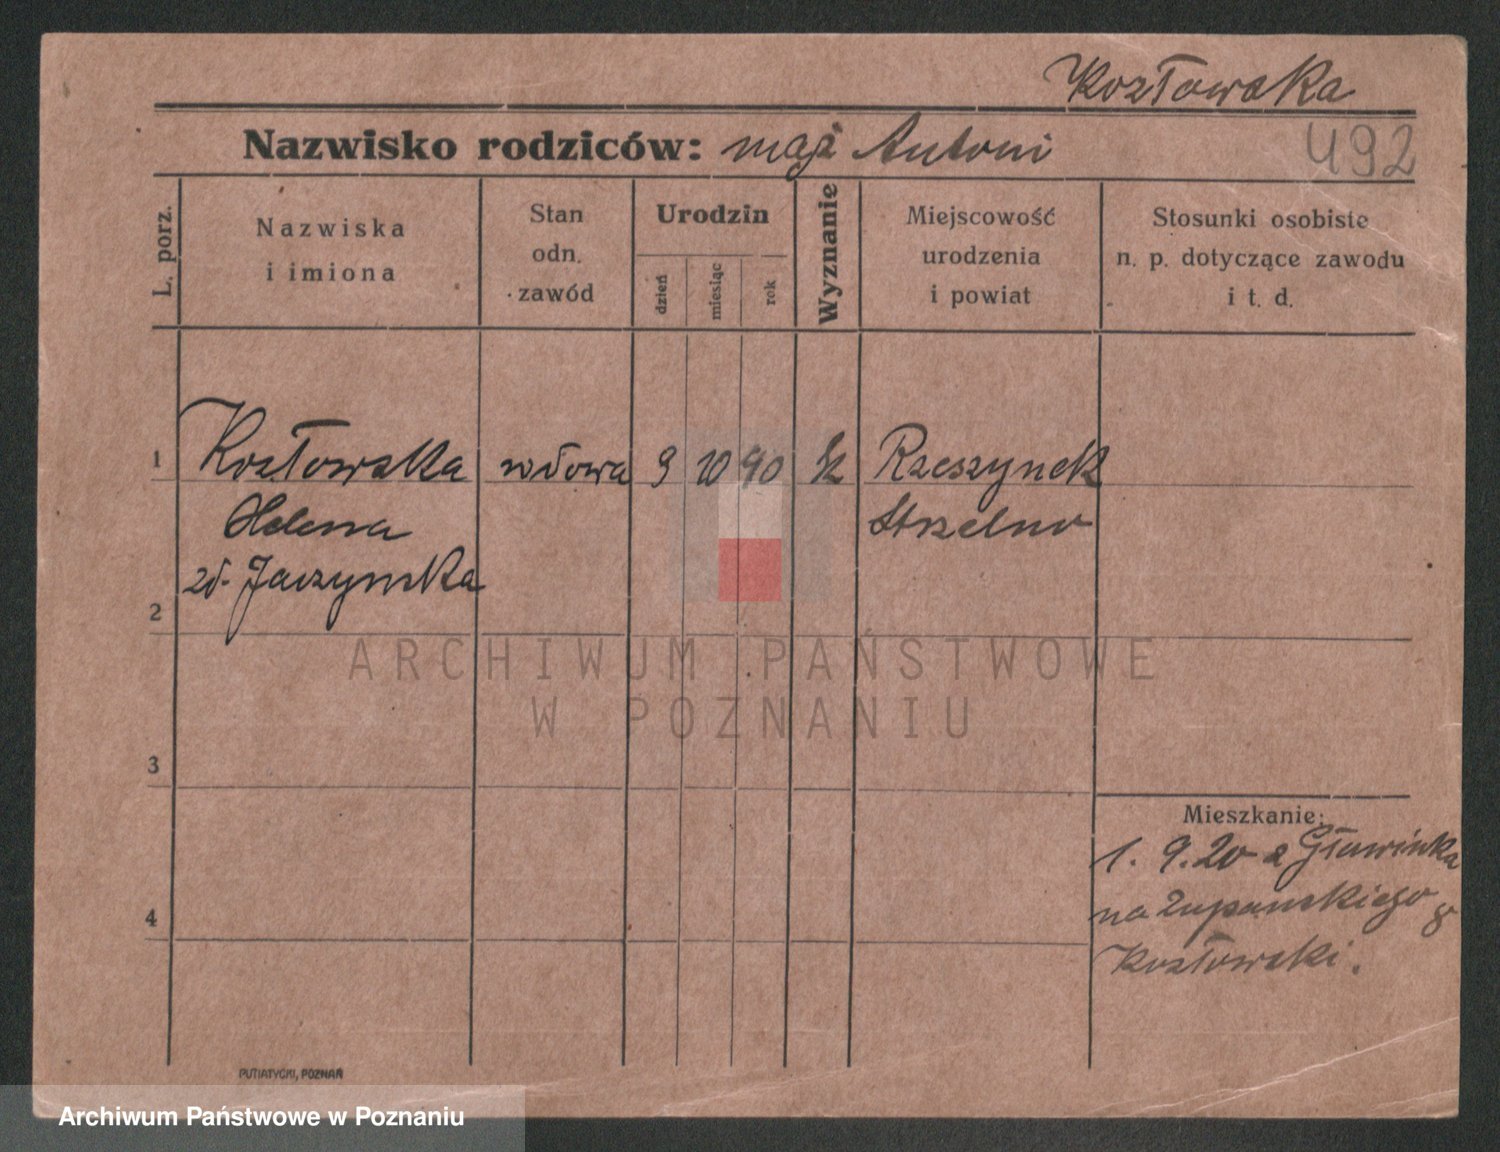 Kozłowska
Nazwisko rodziców: mąż Antoni
492
L. porz.
Nazwiska
i imiona
Stan
odn.
zawód
Urodzin
dzień
miesiąc
rok
Wyznanie
Miejscowość
urodzenia
i powiat
Stosunki osobiste
n. p. dotyczące zawodu
i t. d.
1 Kozłowska wdowa 9 10 90 Rzeszynek
Helena Strzelno
zd. Jaczynska
2
ARCHIWUM PAŃSTWOWE
W POZNANIU
3
Mieszkanie:
1. 9. 20 z Gławinka
na Zupanskiego 8
4
Kozłowski.
PUTIATYCKI, POZNAŃ
Archiwum Państwowe w Poznaniu